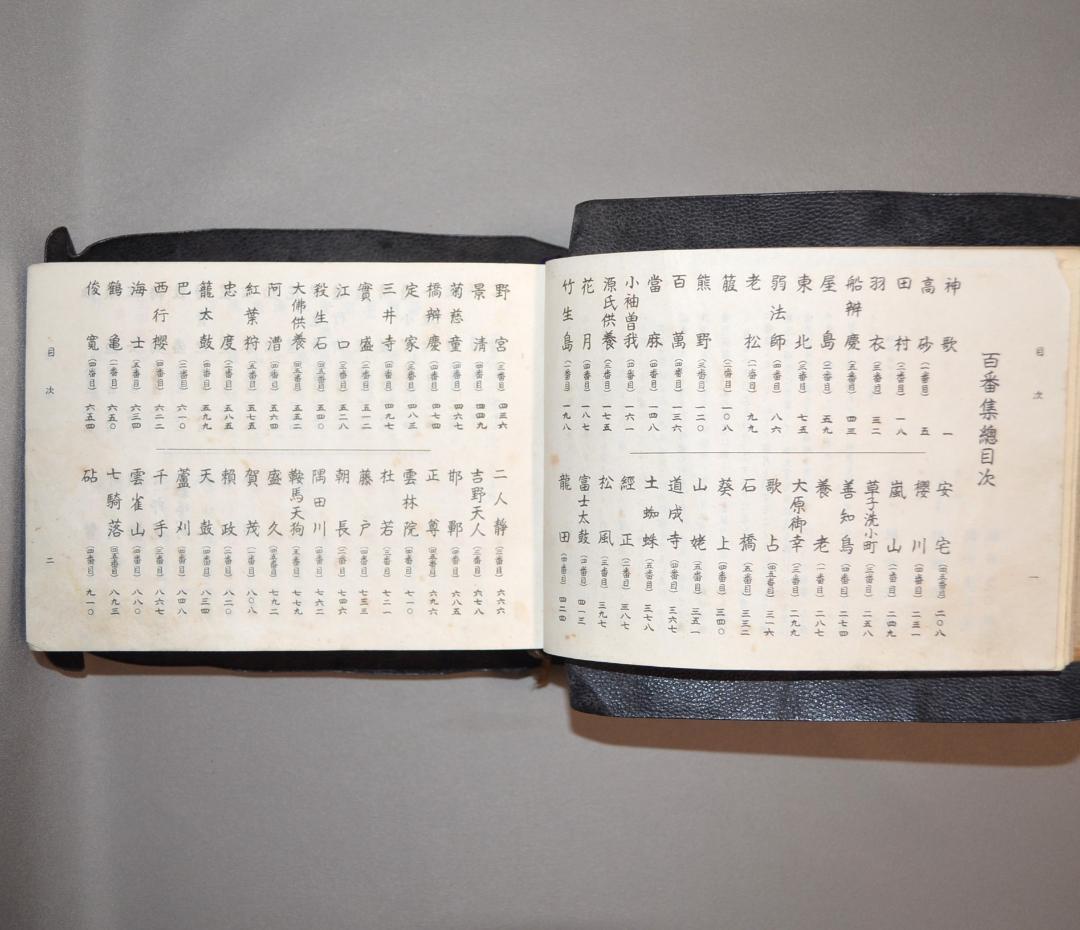 目次
一
百番集總目次
神歌 一
高砂 (一番目) 五
田村 (二番目) 一八
羽衣 (三番目) 三二
船辨慶 (五番目) 四三
屋島 (二番目) 五九
東北 (三番目) 七五
弱法師 (四番目) 八六
老松 (一番目) 九九
箙 (二番目) 一〇八
熊野 (三番目) 一二〇
百萬 (四番目) 一三六
當麻 (五番目) 一四八
小袖曽我 (四番目) 一六一
源氏供養 (三番目) 一七五
花月 (四番目) 一八七
竹生島 (一番目) 一九八
安宅 (四五番目) 二〇八
櫻川 (四番目) 二三一
嵐山 (一番目) 二四九
草子洗小町 (三番目) 二五八
善知鳥 (四番目) 二七四
養老 (一番目) 二八七
大原御幸 (三番目) 二九九
歌占 (四五番目) 三一六
石橋 (五番目) 三三二
葵上 (四番目) 三四〇
山姥 (五番目) 三五一
道成寺 (四番目) 三六七
土蜘蛛 (五番目) 三七八
經正 (二番目) 三八七
松風 (三番目) 三九七
富士太鼓 (四番目) 四一三
龍田 (四番目) 四二四
野宮 (三番目) 四三六
景清 (四番目) 四四九
菊慈童 (四番目) 四六七
橋辨慶 (四番目) 四七四
定家 (三番目) 四八三
三井寺 (四番目) 四九七
實盛 (二番目) 五一二
江口 (三番目) 五二八
殺生石 (四五番目) 五四〇
大佛供養 (四五番目) 五五二
阿漕 (四番目) 五六四
紅葉狩 (五番目) 五七五
忠度 (二番目) 五八五
籠太鼓 (四番目) 五九九
巴 (二番目) 六一〇
西行櫻 (四番目) 六二二
海士 (五番目) 六三四
鶴亀 (一番目) 六五〇
俊寛 (四番目) 六五四
二人靜 (三番目) 六六六
吉野天人 (三番目) 六七八
邯鄲 (四番目) 六八五
正尊 (四五番目) 六九六
雲林院 (四番目) 七一〇
杜若 (三番目) 七二一
藤戸 (四番目) 七三三
朝長 (二番目) 七四六
隅田川 (四番目) 七六二
鞍馬天狗 (五番目) 七七九
盛久 (四番目) 七九二
賀茂 (一番目) 八〇八
賴政 (二番目) 八二〇
天鼓 (四番目) 八三四
蘆刈 (四番目) 八四八
千手 (三番目) 八六七
雲雀山 (四番目) 八八〇
七騎落 (四五番目) 八九三
砧 (四番目) 九一〇
目次
二